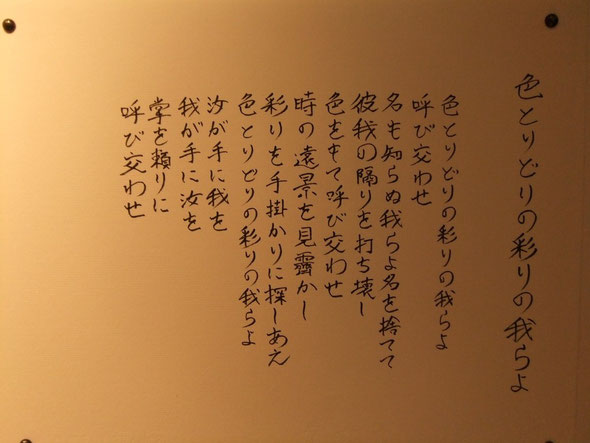 色とりどりの彩りの我らよ
色とりどりの彩りの我らよ
呼び交わせ
名も知らぬ我らよ名を捨てて
彼我の隔りを打ち壊し
色をもて呼び交わせ
時の遠景を見霽かし
彩りを手掛かりに探しあえ
色とりどりの彩りの我らよ
汝が手に我を
我が手に汝を
掌を頼りに
呼び交わせ